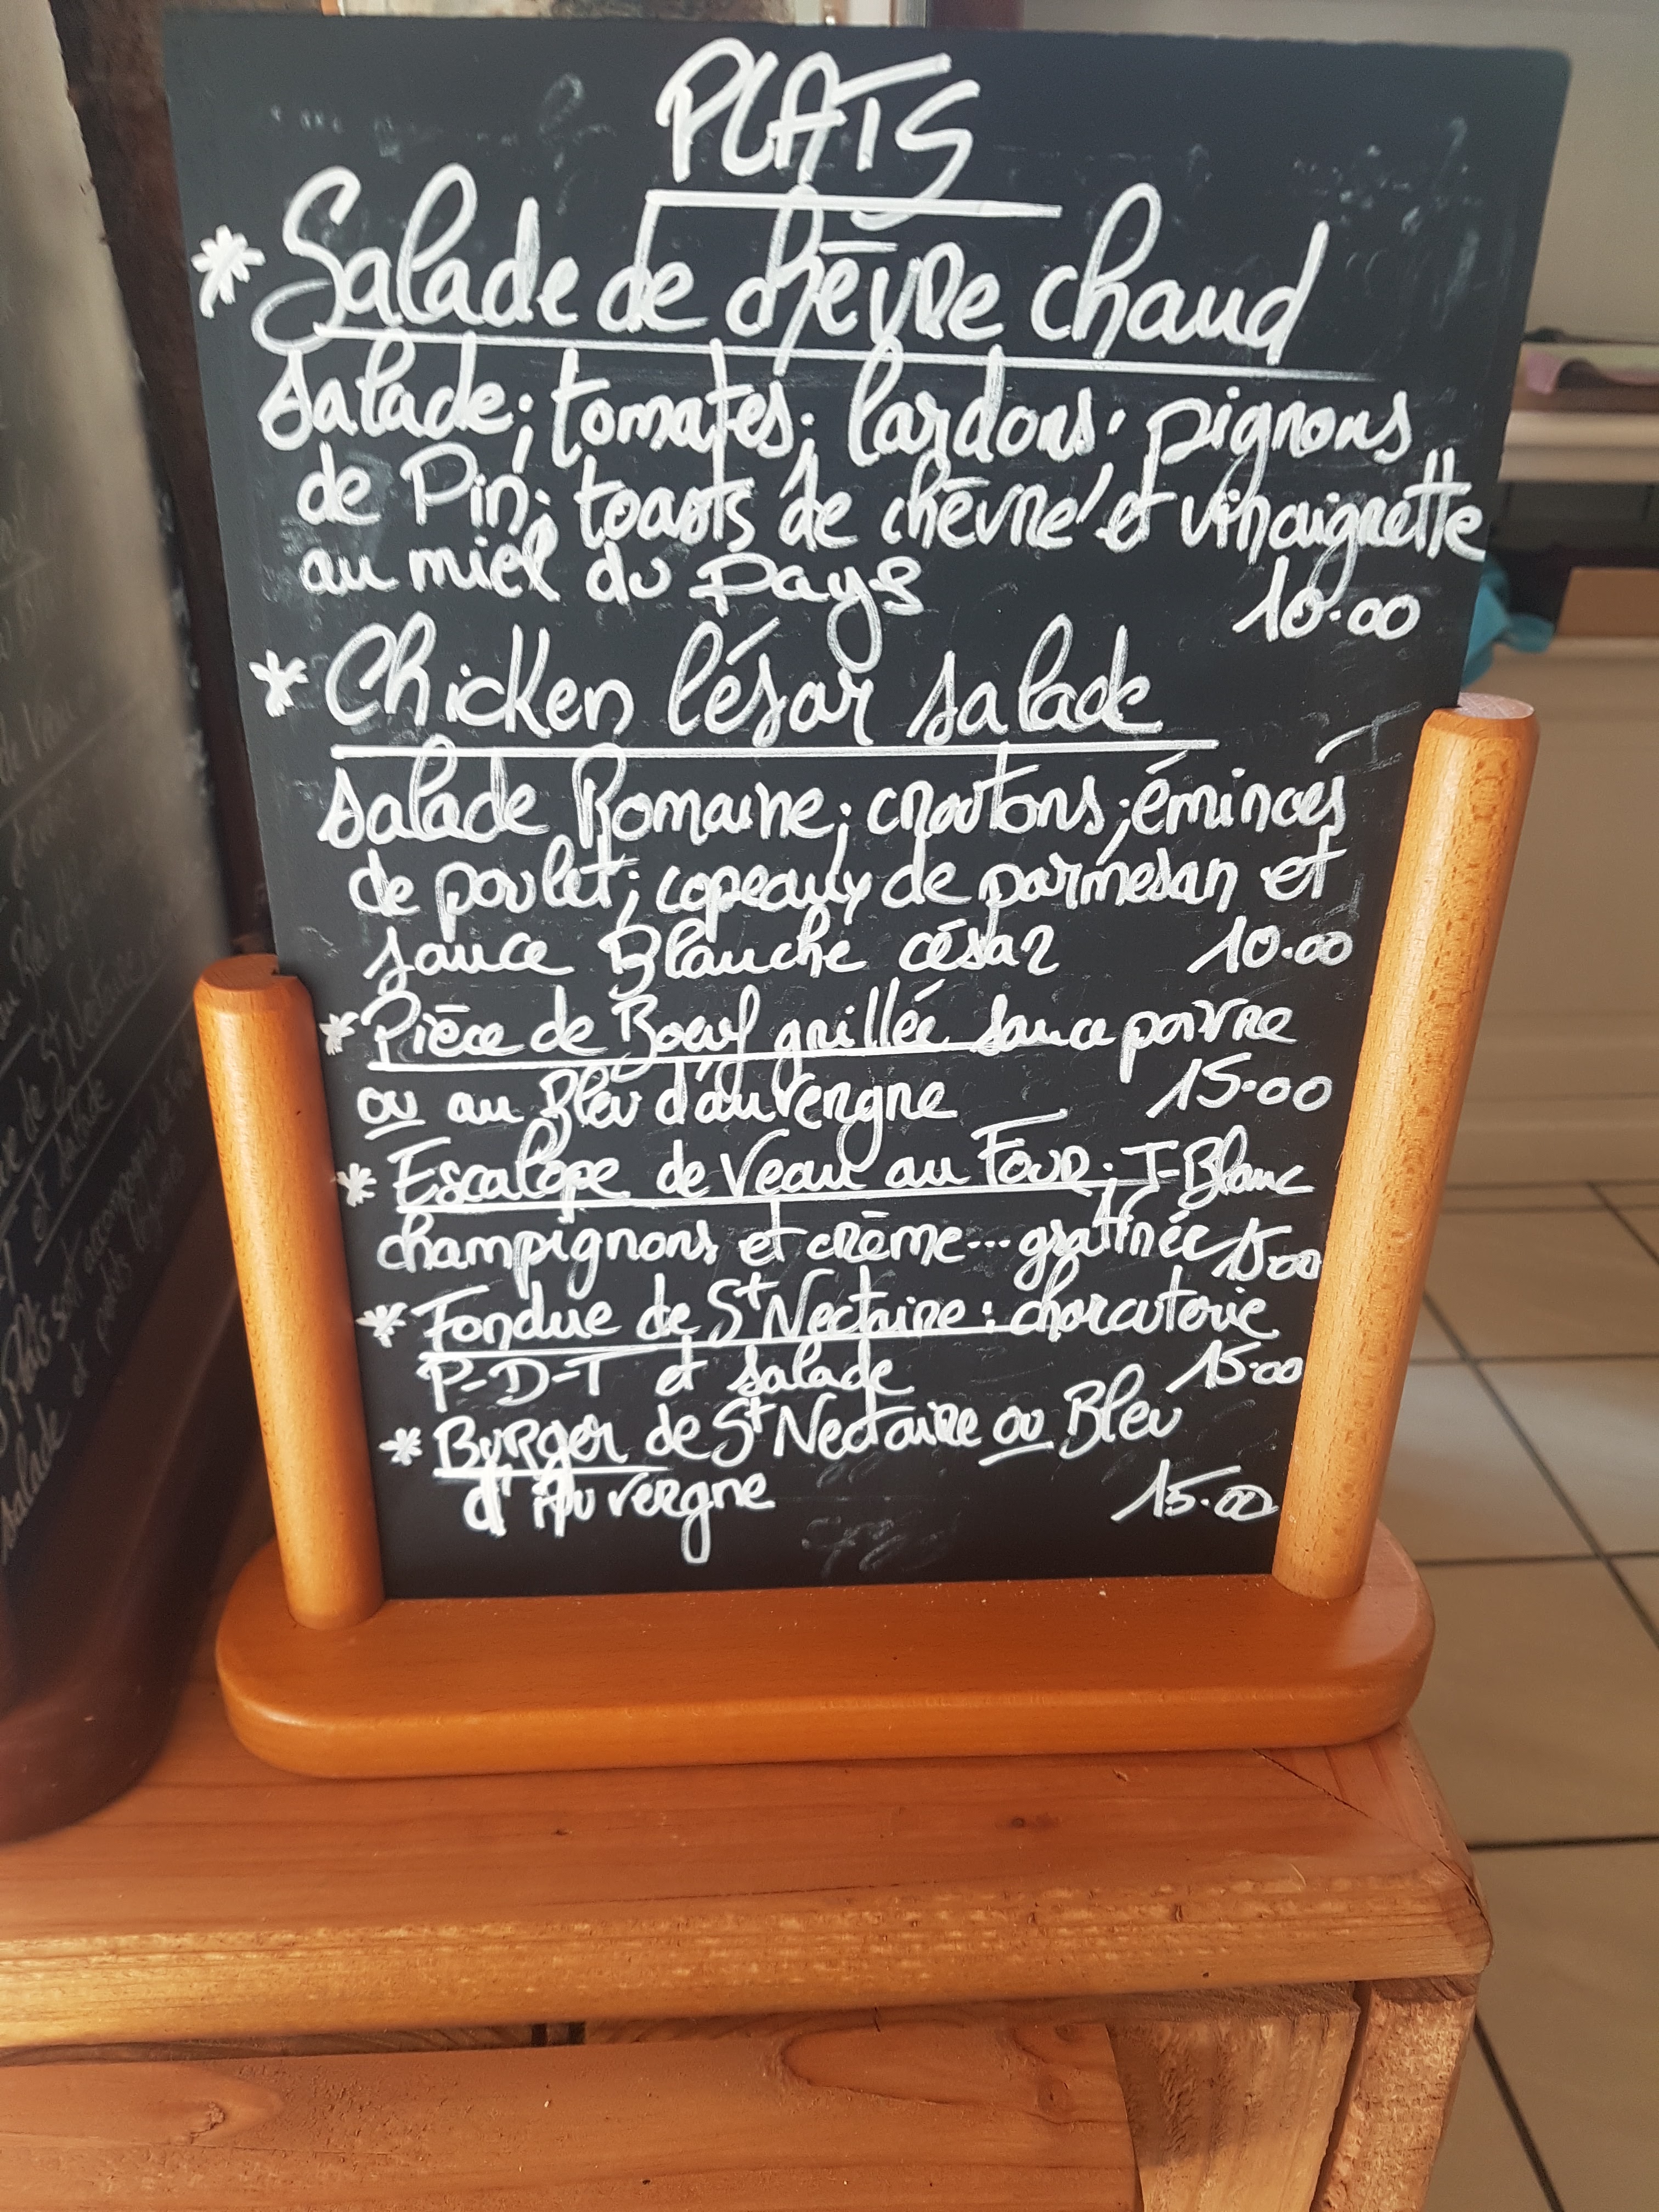 PLATS
* Salade de chēvre chaud
Salade; tomates; lardons; pignons
de Pin; toasts de chēvre et vinaigrette
au miel du pays
10.00
* Chicken César salade
salade Romaine; croutons; émincés
de poulet; copeaux de parmesan et
sauce Blanche césar 10.00
* Pièce de Boeuf grillée sauce poivre
ou au Bleu d'auvergne 15.00
* Escalope de Veau au Four; J-Blanc
champignons et crème... gratinée 15.00
* Fondue de St Nectaire : charcuterie
P-D-T et salade 15.00
* Burger de St Nectaire ou Bleu
d'Auvergne 15.00
salade